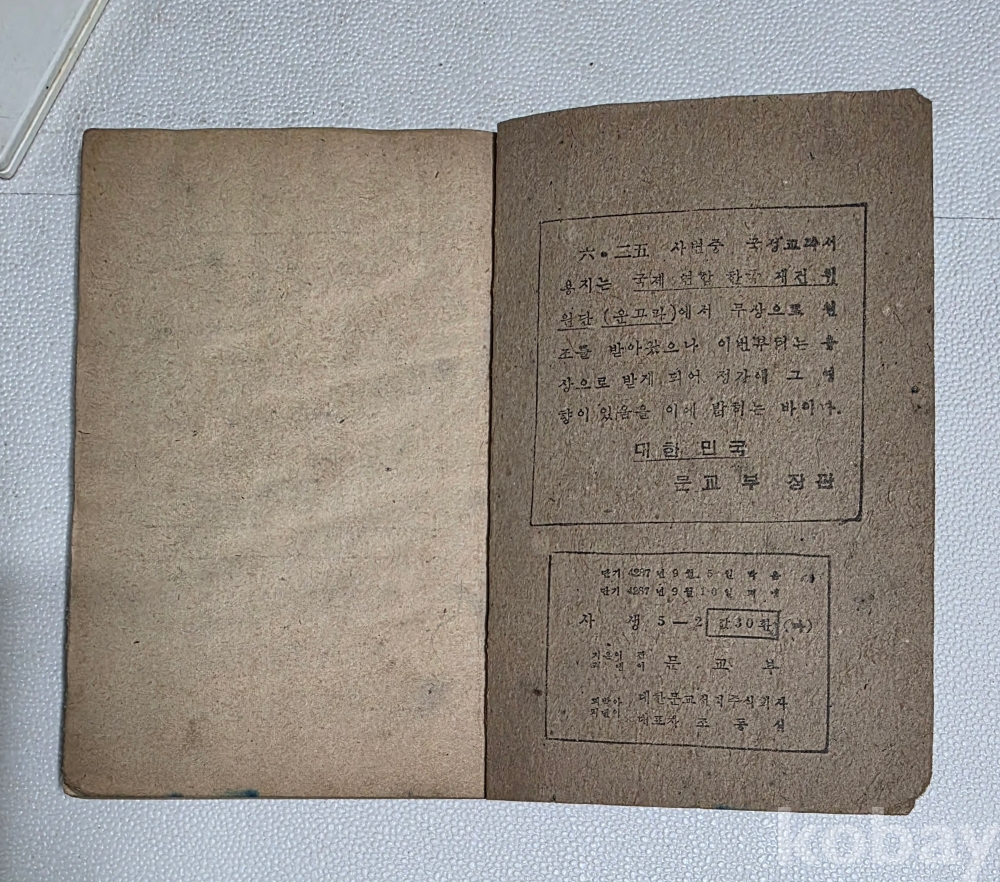 六•二五 사변중 국정교과서
용지는 국제 연합 한국 재건 위
원단 (운끄라)에서 무상으로 원
조를 받아왔으나 이번부터는 유
상으로 받게 되어 정가에 그 영
향이 있음을 이에 밝히는 바이다.
대한 민국
문교부 장관
단기 4287년 9월 5일 박음
단기 4287년 9월 10일 펴냄
사 생 5—2 값30환
지은이 겸
펴낸이 문 교 부
박아 대한문교서적주식회사
대표자 조 동 식
kobay